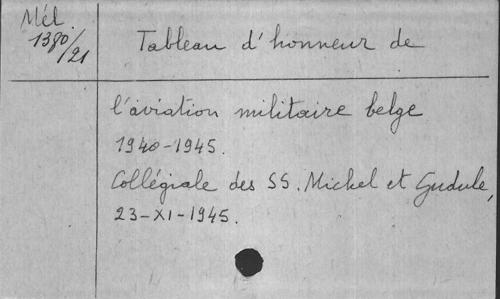 Mél.
1380/21
Tableau d'honneur de
l'aviation militaire belge
1940-1945.
Collégiale des SS. Michel et Gudule,
23-XI-1945.